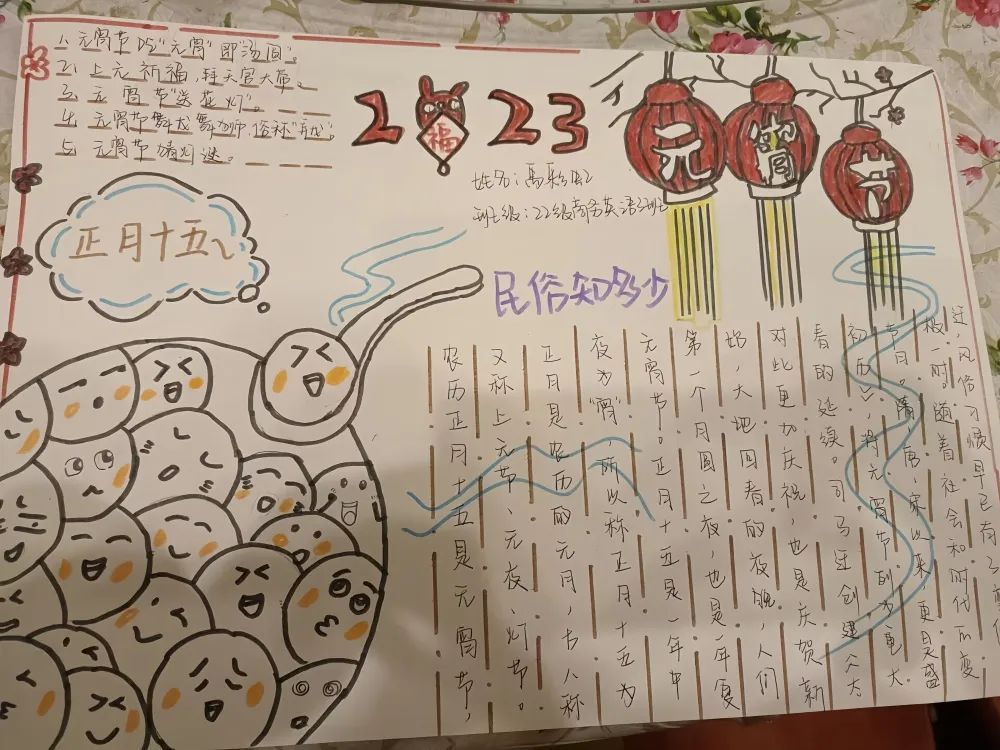 1. 元宵节吃"元宵"即"汤圆"。
2. 上元祈福,拜天官大帝。
3. 元宵节"送花灯"。
4. 元宵节舞龙舞狮俗称
5. 元宵节猜灯谜。
2023
福
元宵节
姓名:
班级:22级商务英语
正月十五
民俗知多少
农历正月十五是元宵节,
又称上元节、元夜、灯节。
正月是农历的元月,古人称
夜为"宵",所以称正月十五为
元宵节。正月十五是一年中
第一个月圆之夜,也是一年复
始,大地回春的夜晚,人们
对此更加庆祝,也是庆贺新
春的延续。司马迁创建《太
初历》,将元宵节列为重大
节日。隋、唐、宋以来,更是盛
极一时。随着社会和时代的变
迁,风俗习惯早已有了